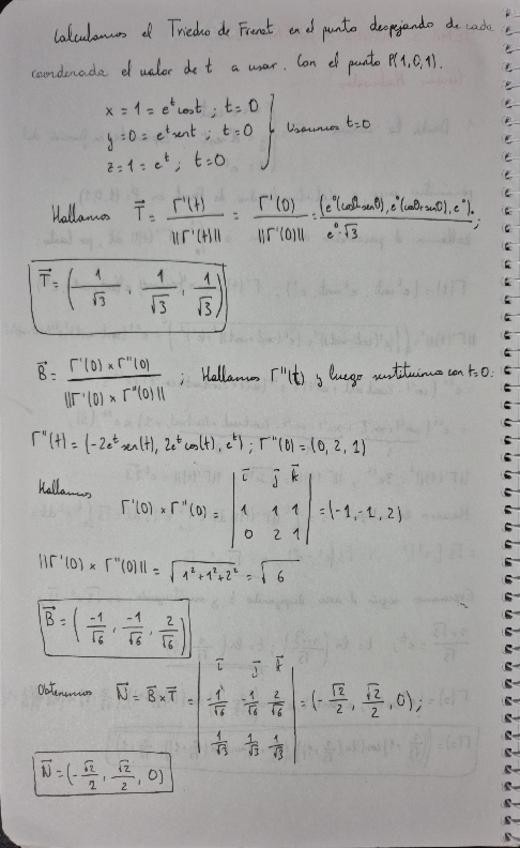 Calculamos el Triedro de Frenet en el punto despejando de cada
coordenada el valor de t a usar. Con el punto P(1,0,1).
x = 1 = e^t cost ; t = 0
y = 0 = e^t sent ; t = 0 } Usaremos t=0
z = 1 = e^t ; t = 0
Hallamos T⃗ = Γ'(t) / ||Γ'(t)|| = Γ'(0) / ||Γ'(0)|| = (e^0(cos0-sen0), e^0(cos0+sen0), e^0) / e^0·√3 ;
T⃗ = (1/√3, 1/√3, 1/√3)
B⃗ = Γ'(0) x Γ''(0) / ||Γ'(0) x Γ''(0)|| ; Hallamos Γ''(t) y luego sustituimos con t=0:
Γ''(t) = (-2e^t sen(t), 2e^t cos(t), e^t) ; Γ''(0) = (0, 2, 1)
Hallamos
Γ'(0) x Γ''(0) = | i⃗ j⃗ k⃗ |
| 1 1 1 | = (-1, -1, 2)
| 0 2 1 |
||Γ'(0) x Γ''(0)|| = √(1²+1²+2²) = √6
B⃗ = (-1/√6, -1/√6, 2/√6)
Obtenemos N⃗ = B⃗ x T⃗ = | i⃗ j⃗ k⃗ |
| -1/√6 -1/√6 2/√6 | = (-√2/2, √2/2, 0);
| 1/√3 1/√3 1/√3 |
N⃗ = (-√2/2, √2/2, 0)